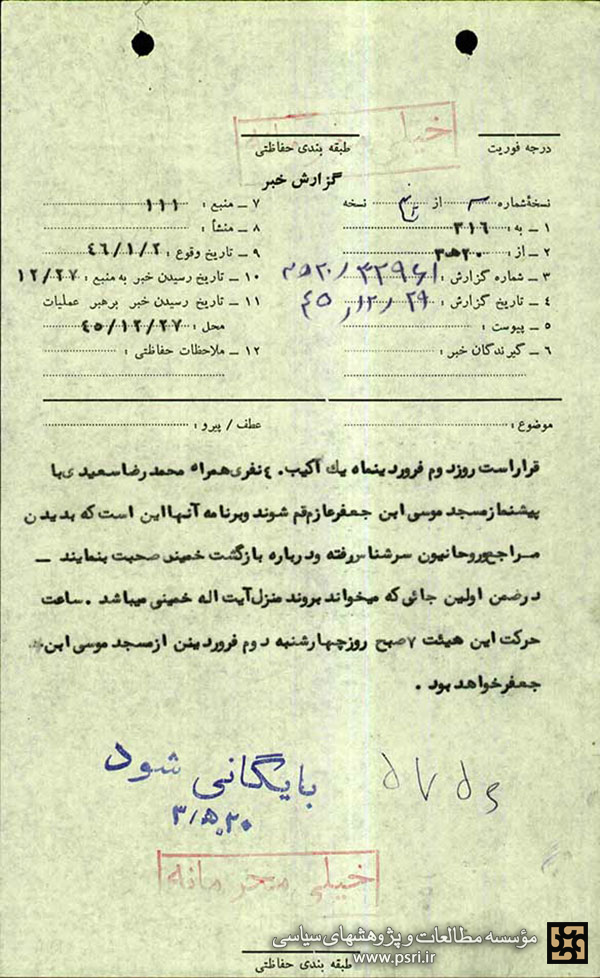 خیلی محرمانه
درجه فوریت
طبقه بندی حفاظتی
گزارش خبر
نسخهٔ شماره از ۳ نسخه
۱ ــ به : ۳۱۶
۲ ــ از : ۲۰ ه‍ ۳
۳ ــ شماره گزارش :
۴ ــ تاریخ گزارش : ۴۵/۱۲/۲۹
۵ ــ پیوست :
۶ ــ گیرندگان خبر :
۷ ــ منبع : ۱۱۱
۸ ــ منشأ :
۹ ــ تاریخ وقوع : ۴۶/۱/۲
۱۰ ــ تاریخ رسیدن خبر به منبع : ۱۲/۲۷
۱۱ ــ تاریخ رسیدن خبر برهبر عملیات
محل : ۴۵/۱۲/۲۷
۱۲ ــ ملاحظات حفاظتی :
موضوع :
عطف / پیرو :
قرار است روز دوم فروردینماه یك آکیپ . ٤ نفری همراه محمد رضا سعیدی با
پیشنماز مسجد موسی ابن جعفر عازم قم شوند و برنامه آنها این است که بدیدن
مراجع و روحانیون سرشناس رفته و درباره بازگشت خمینی صحبت بنمایند ــ
در ضمن اولین جائی که میخواند بروند منزل آیت اله خمینی میباشد . ساعت
حرکت این هیئت ۷ صبح روز چهارشنبه دوم فروردینن از مسجد موسی ابن
جعفر خواهد بود .
بایگانی شود
۲۰ ه‍ ۳
خیلی محرمانه
طبقه بندی حفاظتی
مؤسسه مطالعات و پژوهشهای سیاسی
www.psri.ir